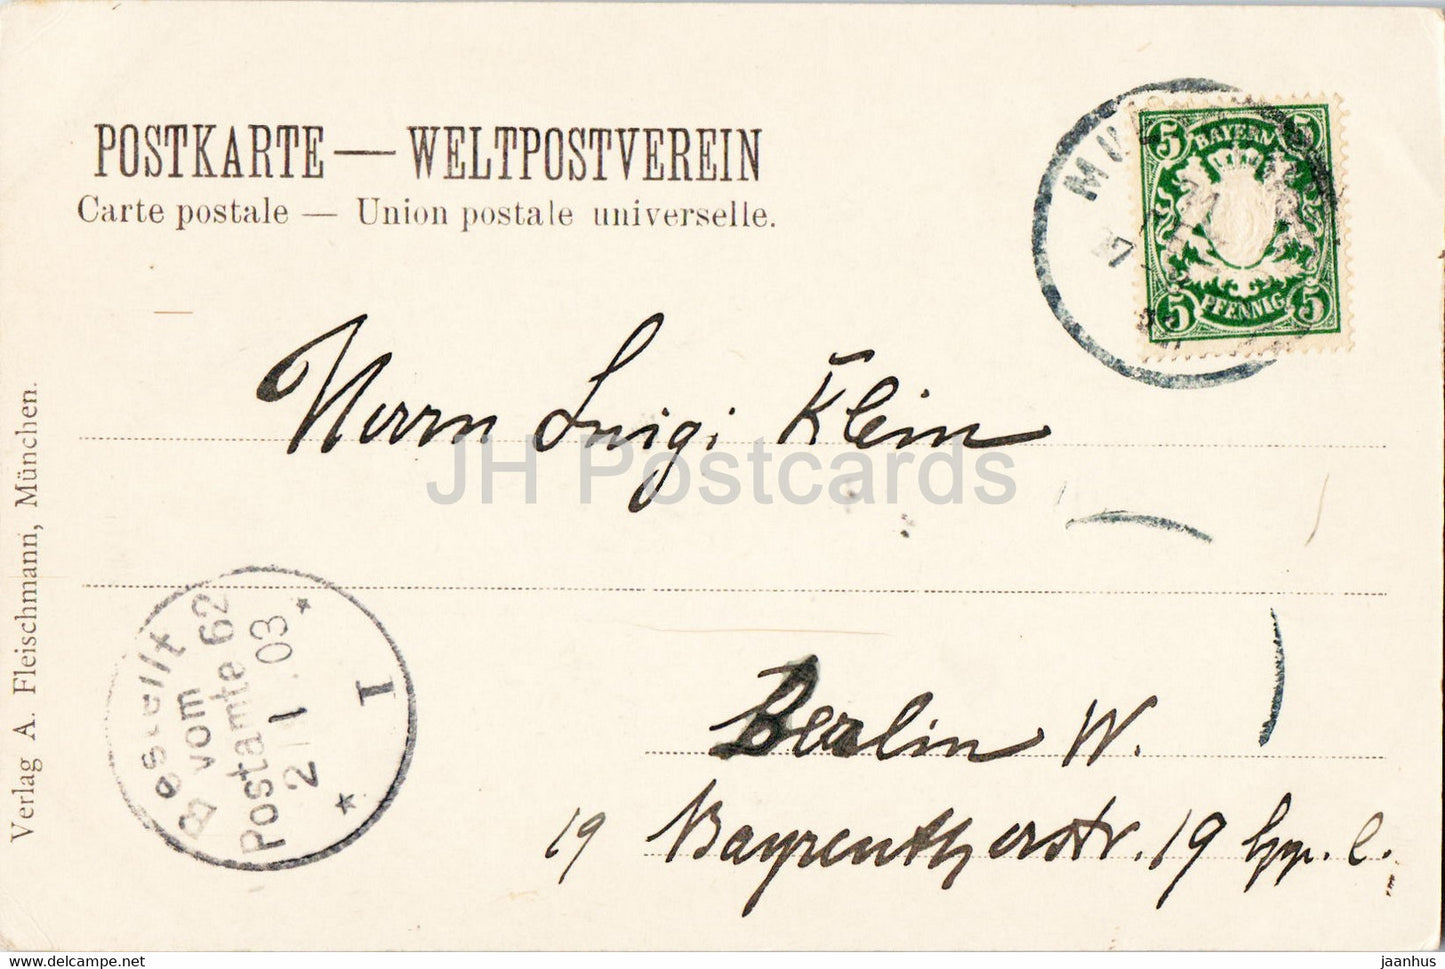 POSTKARTE — WELTPOSTVEREIN
Carte postale — Union postale universelle.
5 BAYERN 5
5 PFENNIG 5
Herrn Luigi Klein
JH Postcards
Bestellt
vom
Postamte 62
2/1.03
I
Berlin W.
19 Bayreutherstr. 19
Verlag A. Fleischmann, München.
jaanhus